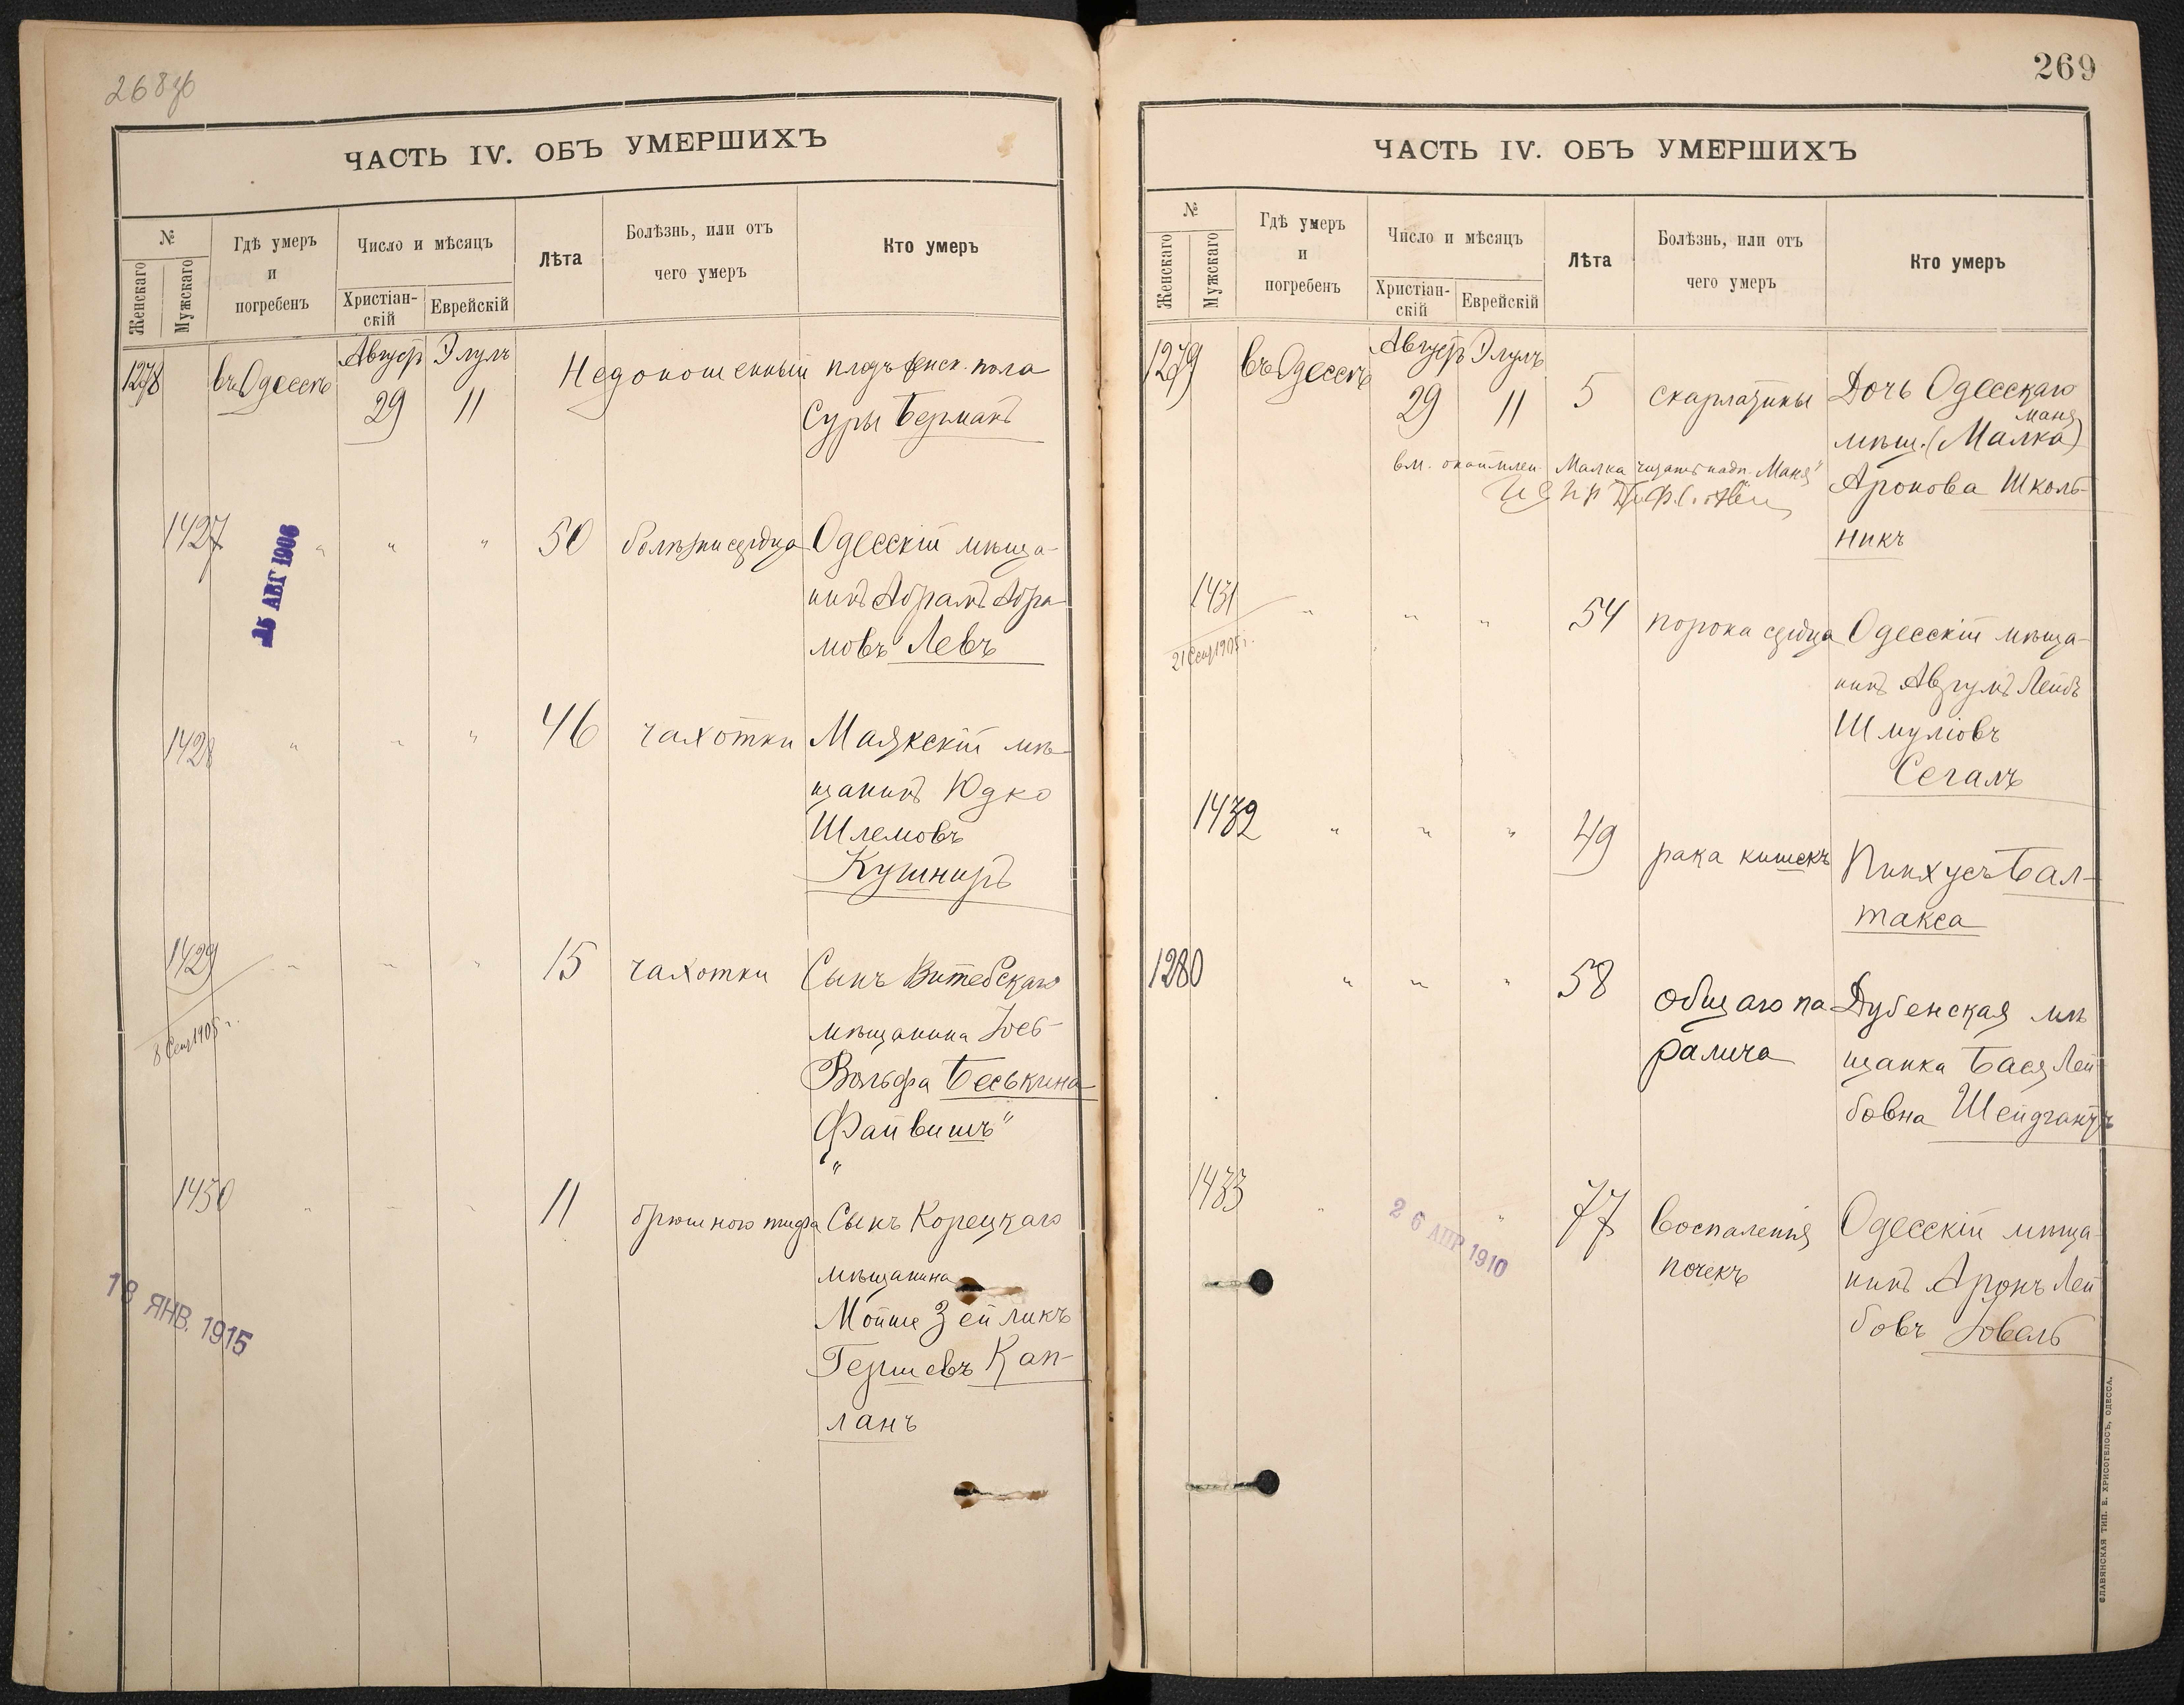 268 об
ЧАСТЬ IV. ОБЪ УМЕРШИХЪ
№
Женскаго
Мужскаго
Гдѣ умеръ
и
погребенъ
Число и мѣсяцъ
Христіан-
скій
Еврейскій
Лѣта
Болѣзнь, или отъ
чего умеръ
Кто умеръ
1278 въ Одессѣ Август Элулъ Недоношенный плодъ женск. пола
29 11 Суры Берманъ
1427 " " " 50 болѣзни сердца Одесскій мѣща-
нинъ Абрамъ Абра-
мовъ Левъ
15 АВГ 1906
1428 " " " 46 чахотки Маякскій мѣ-
щанинъ Юдко
Шлемовъ
Кушниръ
1429 " " " 15 чахотки Сынъ Витебскаго
8 Сент 1905 г. мѣщанина Іос-
Вольфа Беськина
Файвишъ"
"
1430 " " " 11 брюшного тифа Сынъ Корецкаго
мѣщанина
Мойше Зейликъ
Гершевъ Кап-
ланъ
18 ЯНВ. 1915
269
ЧАСТЬ IV. ОБЪ УМЕРШИХЪ
№
Женскаго
Мужскаго
Гдѣ умеръ
и
погребенъ
Число и мѣсяцъ
Христіан-
скій
Еврейскій
Лѣта
Болѣзнь, или отъ
чего умеръ
Кто умеръ
1279 въ Одессѣ Августъ Элулъ
29 11 5 скарлатины Дочь Одесскаго
Маня
мѣщ. (Малка)
вм. Малка читать надп. Маня"
Аронова Школь-
никъ
1431 " " " 54 порока сердца Одесскій мѣща-
21 Сент 1905 г.
нинъ Авгумъ Лейбъ
Шмуліовъ
Сегалъ
1432 " " " 49 рака кишекъ Пинхусъ Бал-
такса
1280 " " " 58 общаго па Дубенская мѣ
ралича щанка Бася Лей
бовна
1433 " " 77 воспаленія Одесскій мѣща-
почекъ нинъ Аронъ Лей
бовъ Іовель
26 АПР 1910
СЛАВЯНСКАЯ ТИП. Е. ХРИСОГЕЛОСЪ, ОДЕССА.